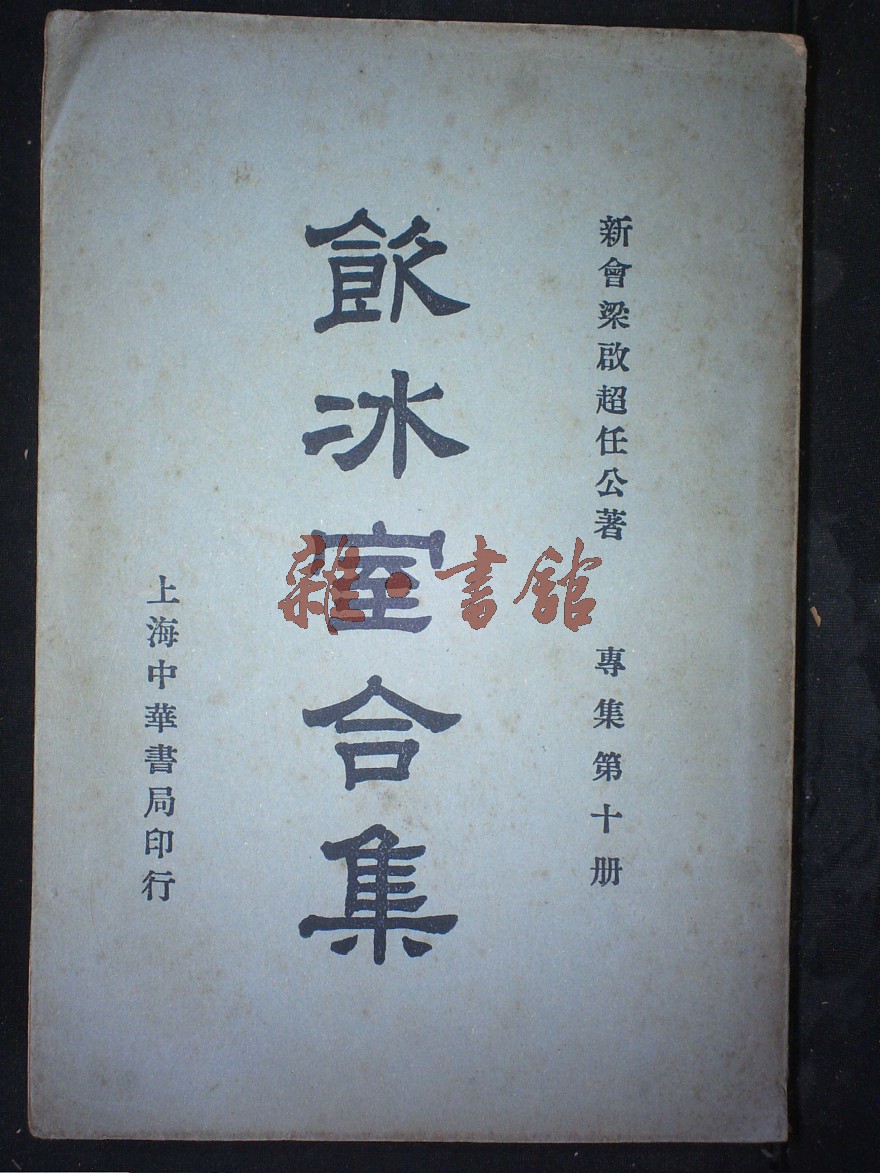 新會梁啟超任公著
專集第十册
飲冰室合集
上海中華書局印行
雜·書館